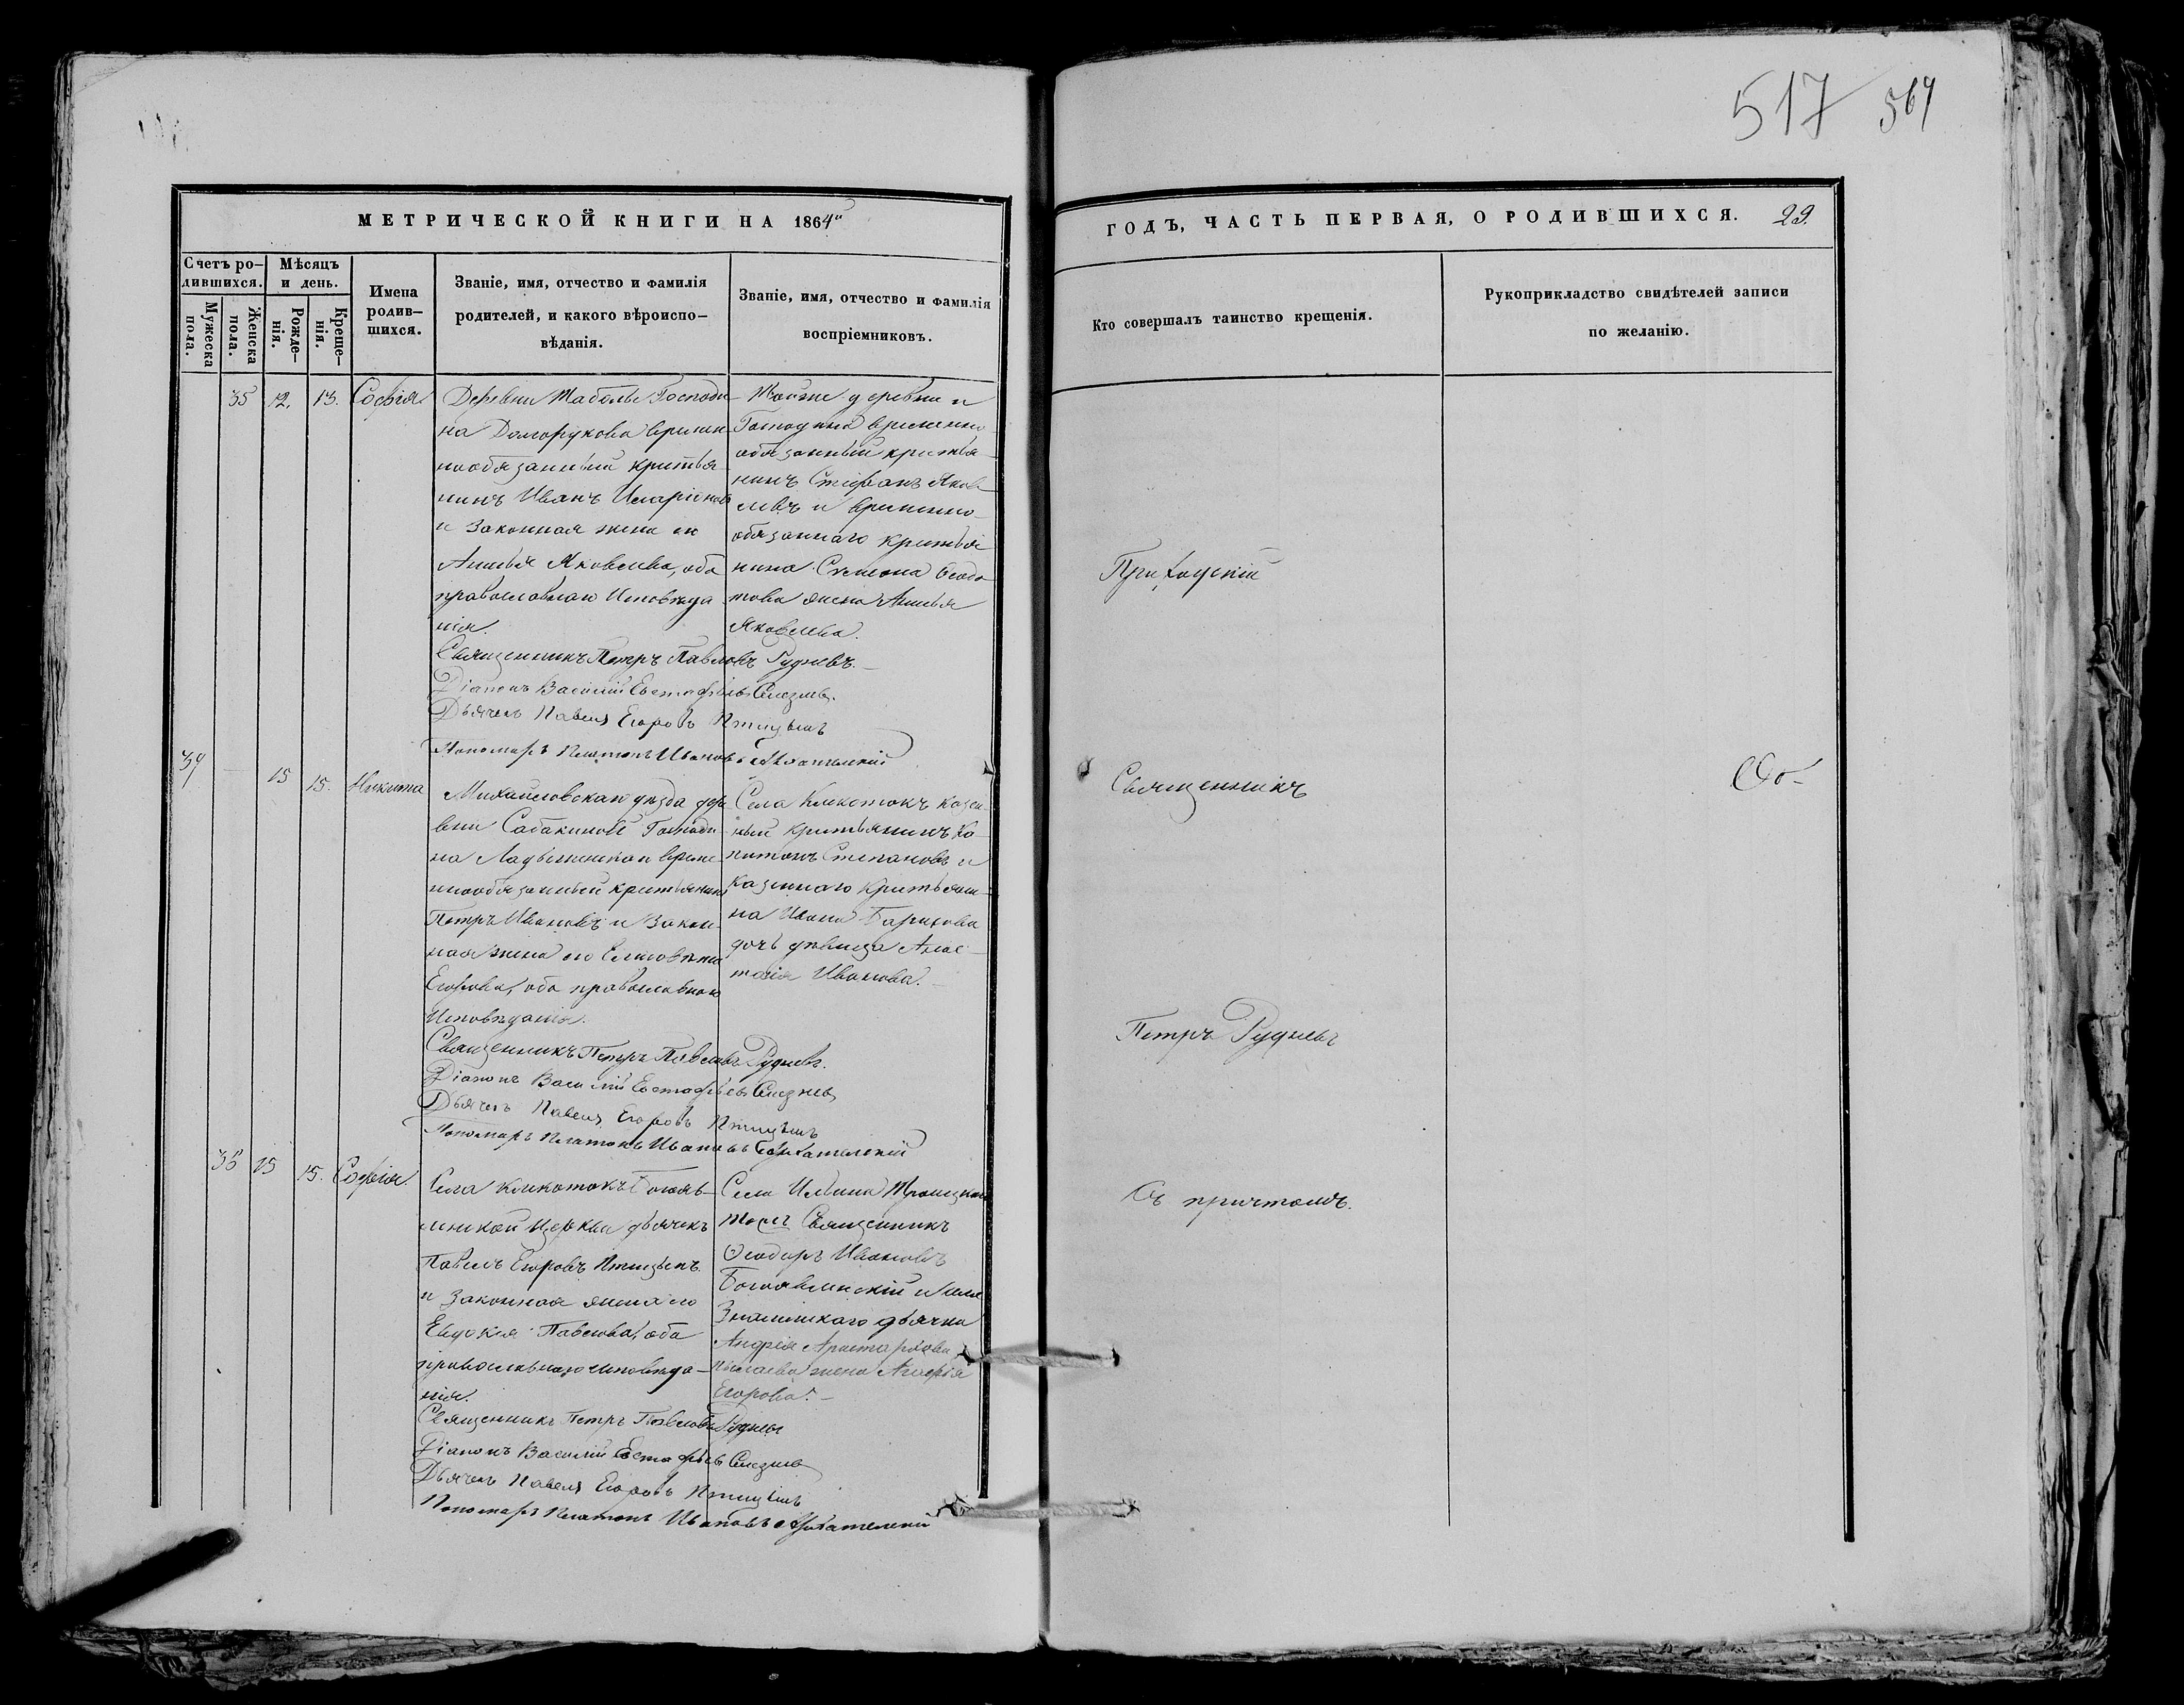 517 569
МЕТРИЧЕСКОЙ КНИГИ НА 1864й
ГОДЪ, ЧАСТЬ ПЕРВАЯ, О РОДИВШИХСЯ. 29.
Счетъ ро-
дившихся.
Мужеска
пола.
Женска
пола.
Мѣсяцъ
и день.
Рожде-
нія.
Креще-
нія.
Имена
родив-
шихся.
Званіе, имя, отчество и фамилія
родителей, и какого вѣроиспо-
вѣданія.
Званіе, имя, отчество и фамилія
воспріемниковъ.
Кто совершалъ таинство крещенія.
Рукоприкладство свидѣтелей записи
по желанію.
35 12. 13. Софія
Деревни Табола Господи-
на Долгорукова времен-
нообязанный крестья-
нинъ Иванъ Иларіоновъ
и законная жена его
Анисья Яковлева, оба
православнаго Исповѣда-
нія.
Тойже деревни и
Господина временно-
обязанный крестья-
нинъ Стефанъ Яков-
левъ и временно-
обязаннаго крестья-
нина Симона Ѳедо-
това жена Анисья
Яковлева.
Священникъ Петръ Павловъ Рудневъ.
Діаконъ Василій Евстафьевъ Селезневъ.
Дьячекъ Павелъ Егоровъ Птицынъ
Пономарь Платонъ Ивановъ
39 - 15 15. Никита
Михайловскаго уѣзда дере-
вни Собакиной Господи-
на Ладыженскаго времен-
нообязанный крестьянинъ
Петръ Ивановъ и закон-
ная жена его
Егорова, оба православнаго
Исповѣданія.
Села Клекотокъ казен-
ный крестьянинъ Ка-
питонъ Степановъ и
казеннаго крестьяни-
на Ивана Барикова
дочь дѣвица Анас-
тасія Иванова.
Священникъ Петръ Павловъ Рудневъ.
Діаконъ Василій Евстафьевъ Селезневъ
Дьячекъ Павелъ Егоровъ Птицынъ
Пономарь Платонъ Ивановъ
36 15 15. Софія
Села Клекотокъ Богояв-
ленской церкви дьячекъ
Павелъ Егоровъ Птицынъ
и законная жена его
Евдокія Павлова, оба
православнаго исповѣда-
нія.
Села Ильина Троицкой
тожъ Священникъ
Ѳеодоръ Ивановъ
Богоявленскій и села
Знаменскаго дьячка
Андрея Аристархова
жена Агафія
Егорова.
Священникъ Петръ Павловъ Рудневъ
Діаконъ Василій Евстафьевъ Селезневъ
Дьячекъ Павелъ Егоровъ Птицынъ
Пономарь Платонъ Ивановъ
Приходскій
Священникъ
Петръ Рудневъ
Съ причтомъ.